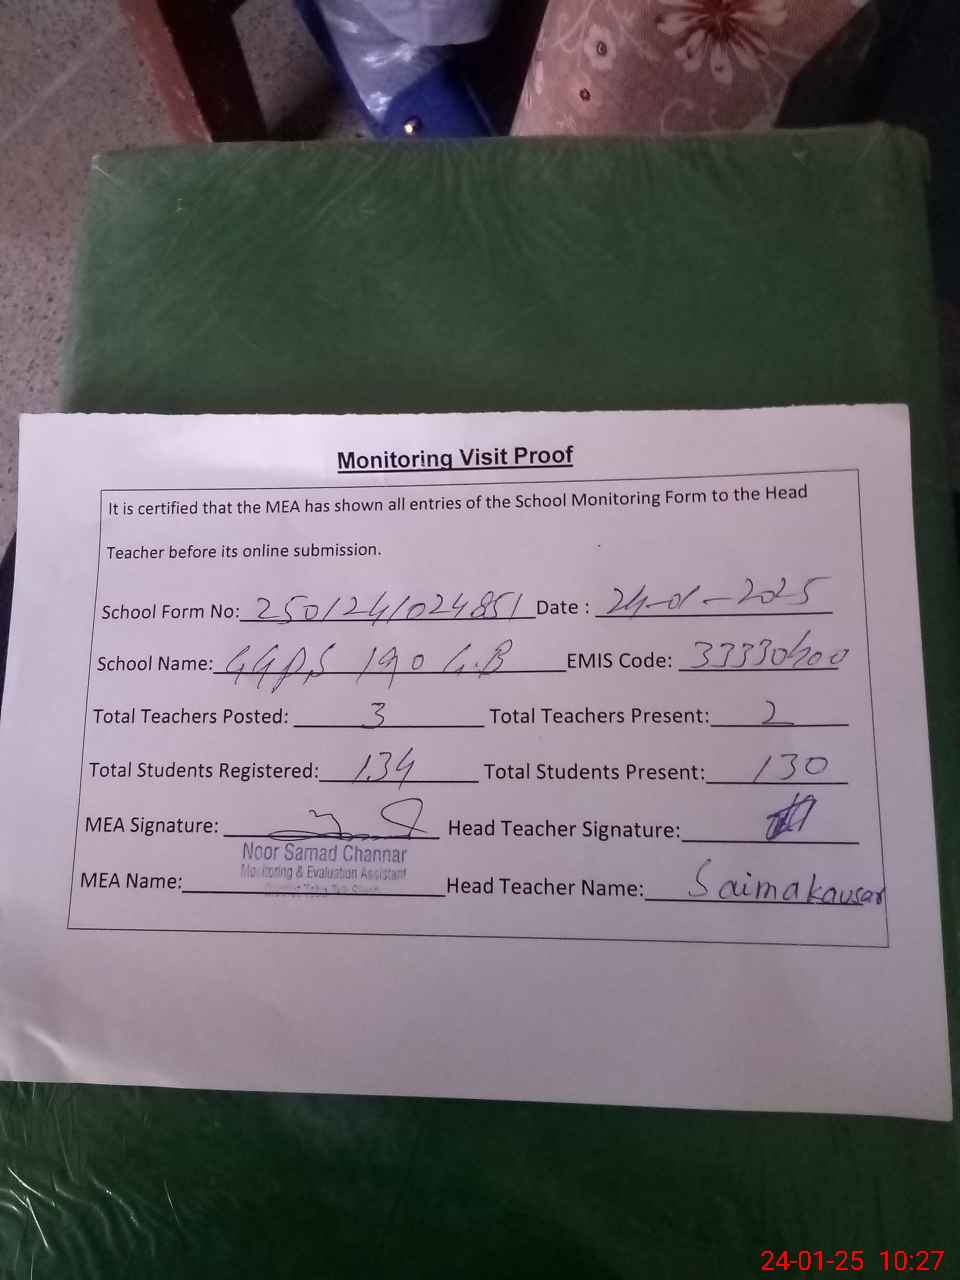 Monitoring Visit Proof
It is certified that the MEA has shown all entries of the School Monitoring Form to the Head
Teacher before its online submission.
School Form No: 250124024851 Date : 24-01-2025
School Name: GGPS 190 G.B EMIS Code:
Total Teachers Posted: 3 Total Teachers Present: 2
Total Students Registered: 134 Total Students Present: 130
MEA Signature: Head Teacher Signature:
Noor Samad Channar
Monitoring & Evaluation Assistant
MEA Name: Head Teacher Name: Saima kausar
24-01-25 10:27